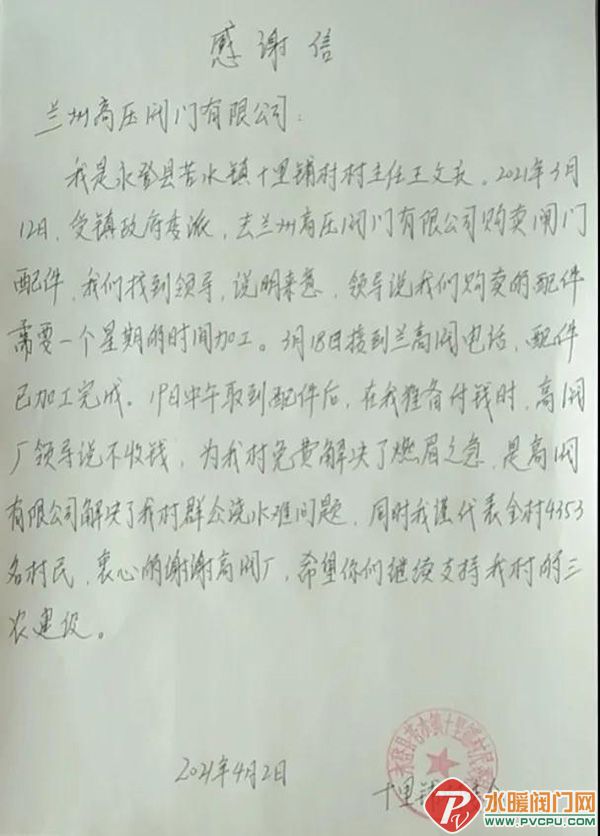 感谢信
兰州高压阀门有限公司:
我是永登县苦水镇十里铺村村主任王文兵。2021年3月
12日,受镇政府委派,去兰州高压阀门有限公司购卖闸门
配件,我们找到领导,说明来意,领导说我们购卖的配件
需要一个星期的时间加工。3月18日接到兰高阀电话,配件
已加工完成。19日中午取到配件后,在我准备付钱时,高阀
厂领导说不收钱,为我村免费解决了燃眉之急,是高阀
有限公司解决了我村群众浇水难问题,同时我谨代表全村4353
名村民,衷心的谢谢高阀厂,希望你们继续支持我村的三
农建设。
2021年4月2日
十里铺
永登县苦水镇十里铺村民
水暖阀门网
WWW.PVCPU.COM